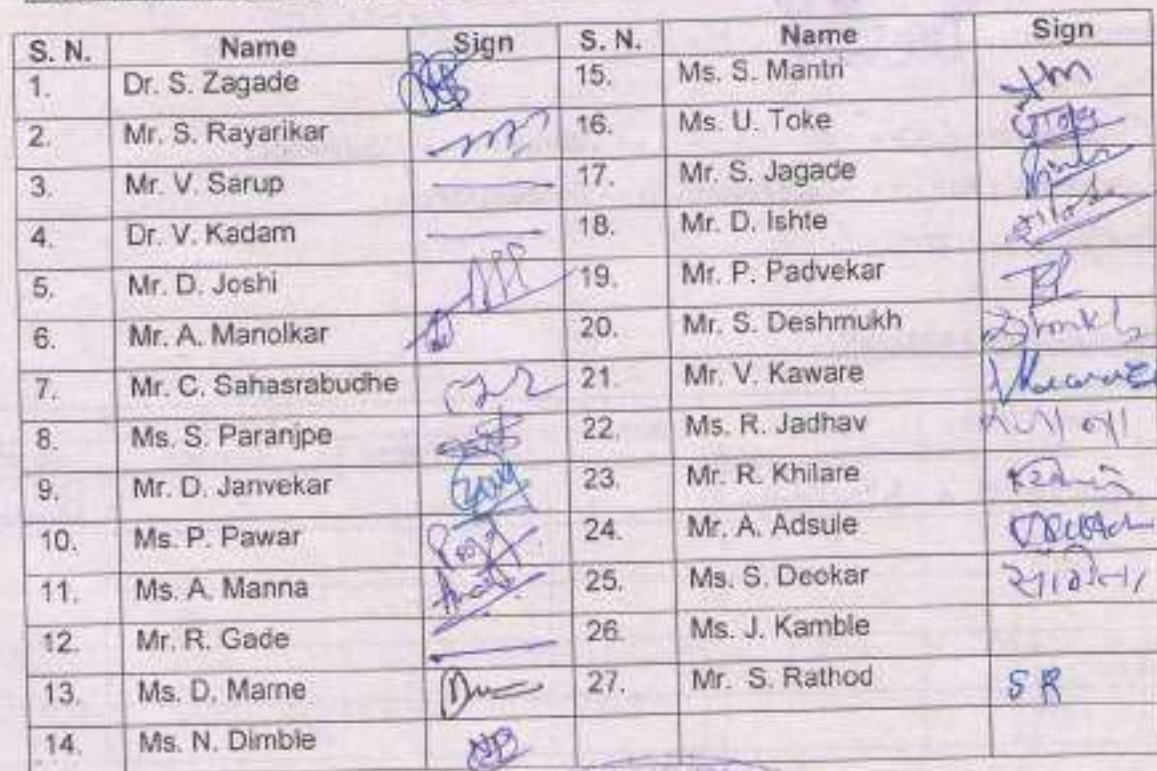 S. N. Name Sign S. N. Name Sign
1. Dr. S. Zagade 15. Ms. S. Mantri
2. Mr. S. Rayarikar 16. Ms. U. Toke
3. Mr. V. Sarup 17. Mr. S. Jagade
4. Dr. V. Kadam 18. Mr. D. Ishte
5. Mr. D. Joshi 19. Mr. P. Padvekar
6. Mr. A. Manolkar 20. Mr. S. Deshmukh
7. Mr. C. Sahasrabudhe 21. Mr. V. Kaware
8. Ms. S. Paranjpe 22. Ms. R. Jadhav
9. Mr. D. Janvekar 23. Mr. R. Khilare
10. Ms. P. Pawar 24. Mr. A. Adsule
11. Ms. A. Manna 25. Ms. S. Deokar
12. Mr. R. Gade 26. Ms. J. Kamble
13. Ms. D. Marne 27. Mr. S. Rathod SR
14. Ms. N. Dimble